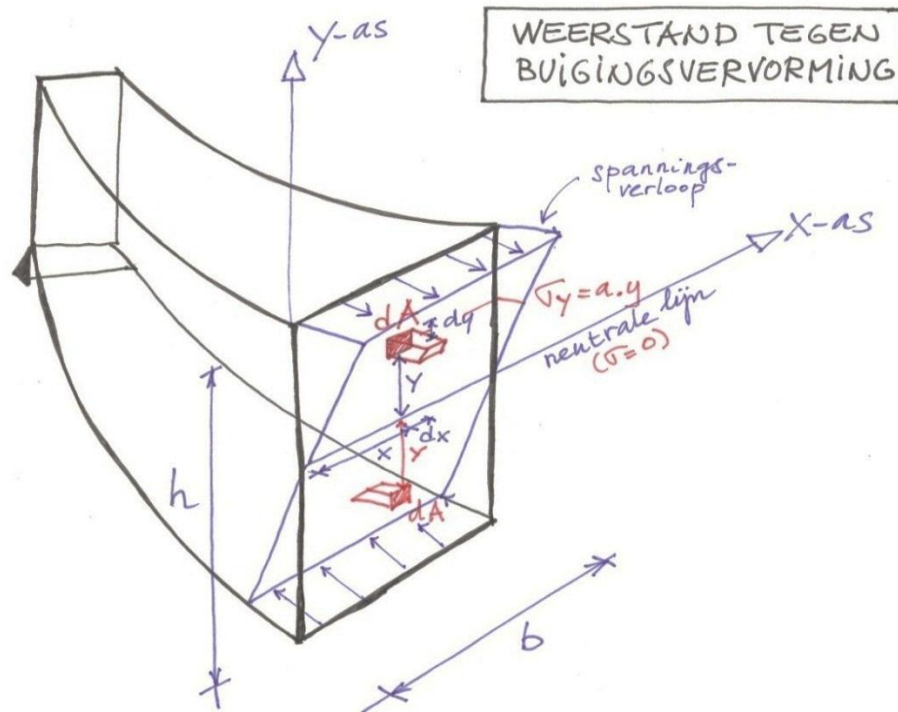 WEERSTAND TEGEN
BUIGINGSVERVORMING
Y-as
spannings-
verloop
X-as
σy = a.y
neutrale lijn
(σ=0)
dA
dy
Y
dx
x
Y
dA
h
b